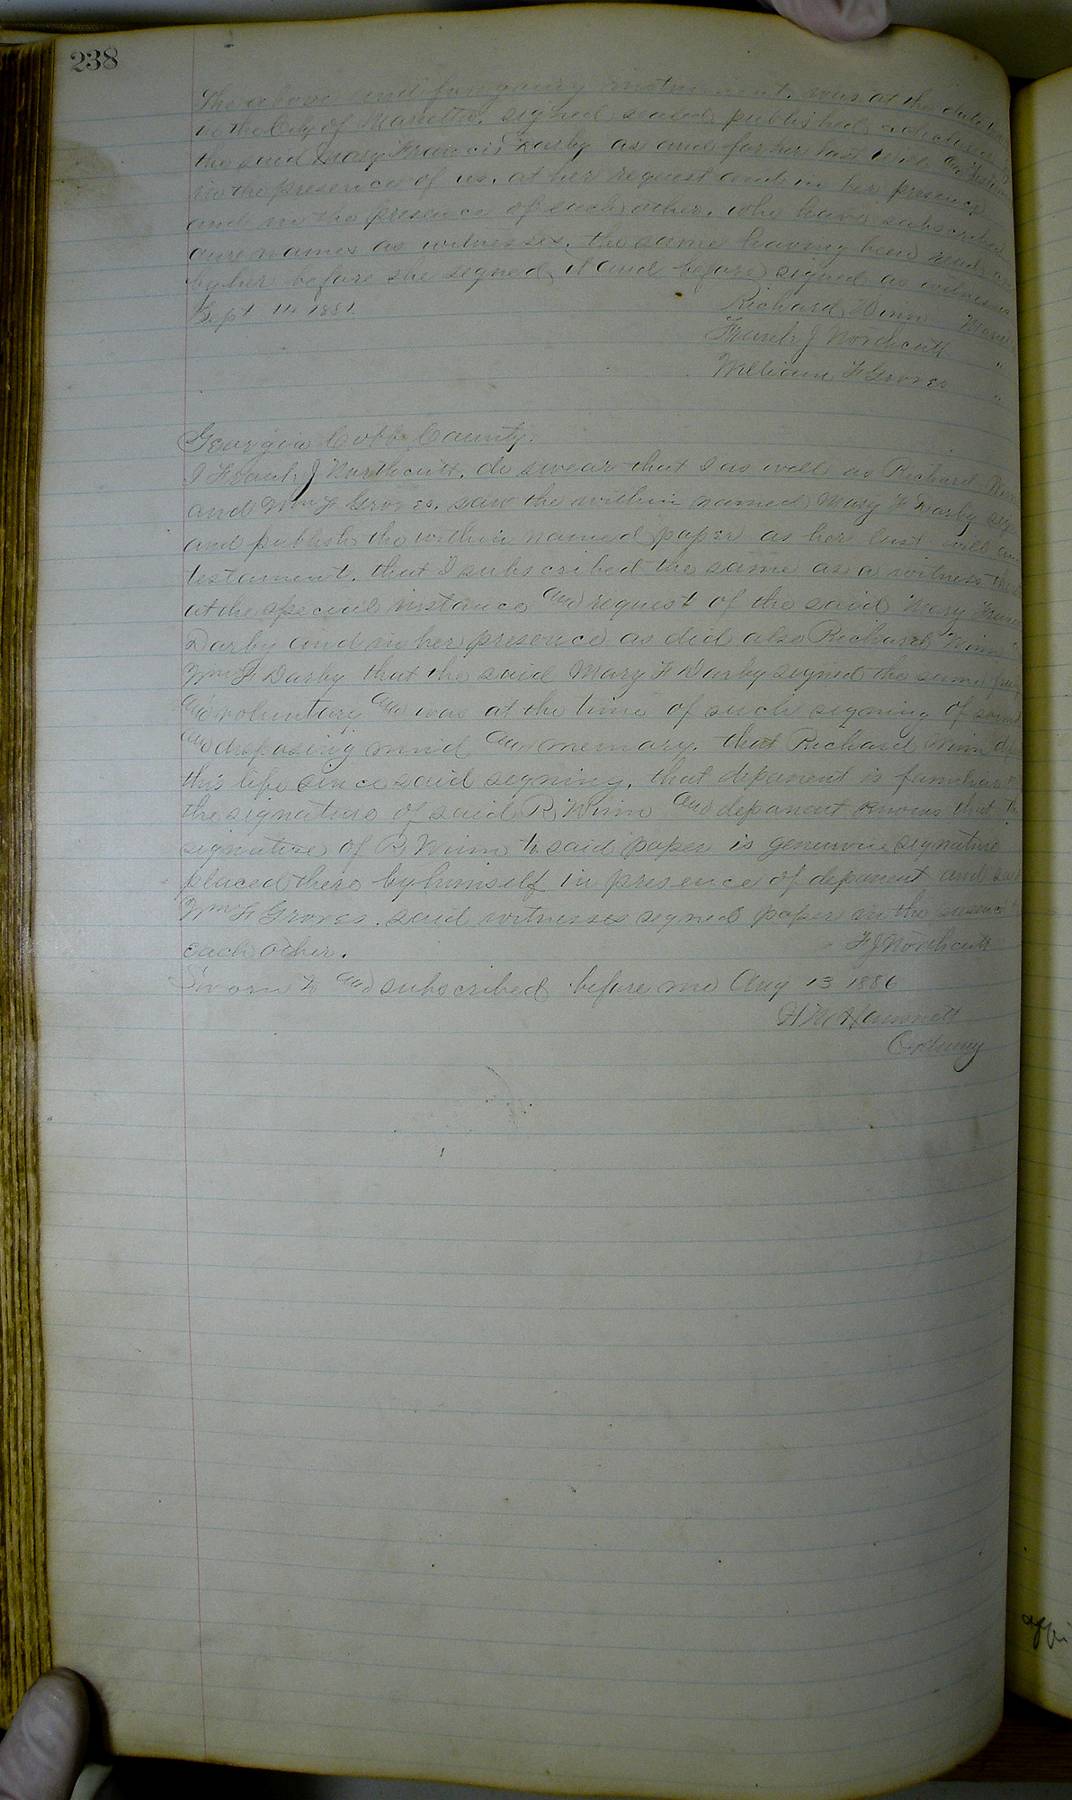 238
The above and foregoing instrument, was at the date
in the City of Marietta, signed sealed published & declared
the said Mary Francis Darby as and for her last Will and
in the presence of us, at her request and in her presence
and in the presence of each other, who have subscribed
our names as witnesses, the same having been read
by her before she signed it and before signed as witnesses
Sept 14 1881
Richard Winn
Frank J Northcutt "
William F Groves "
Georgia Cobb County.
I Frank J Northcutt, do swear that I as well as Richard Winn
and Wm F Groves, saw the within named Mary F Darby
and publish the within named paper as her last will
testament, that I subscribed the same as a witness
at the special instance and request of the said Mary
Darby and in her presence as did also Richard Winn
Wm F Darby that the said Mary F Darby signed the same
and voluntary and was at the time of such signing of sound
and disposing mind and memory. that Richard Winn
this life since said signing, that deponent is familiar
the signature of said R Winn and deponent knows that
signature of R Winn to said paper is genuine signature
placed there by himself in presence of deponent and
Wm F Groves. said witnesses signed paper in the presence
each other.
F J Northcutt
Sworn to and subscribed before me Aug 13 1886
H M Hammett
Ordinary